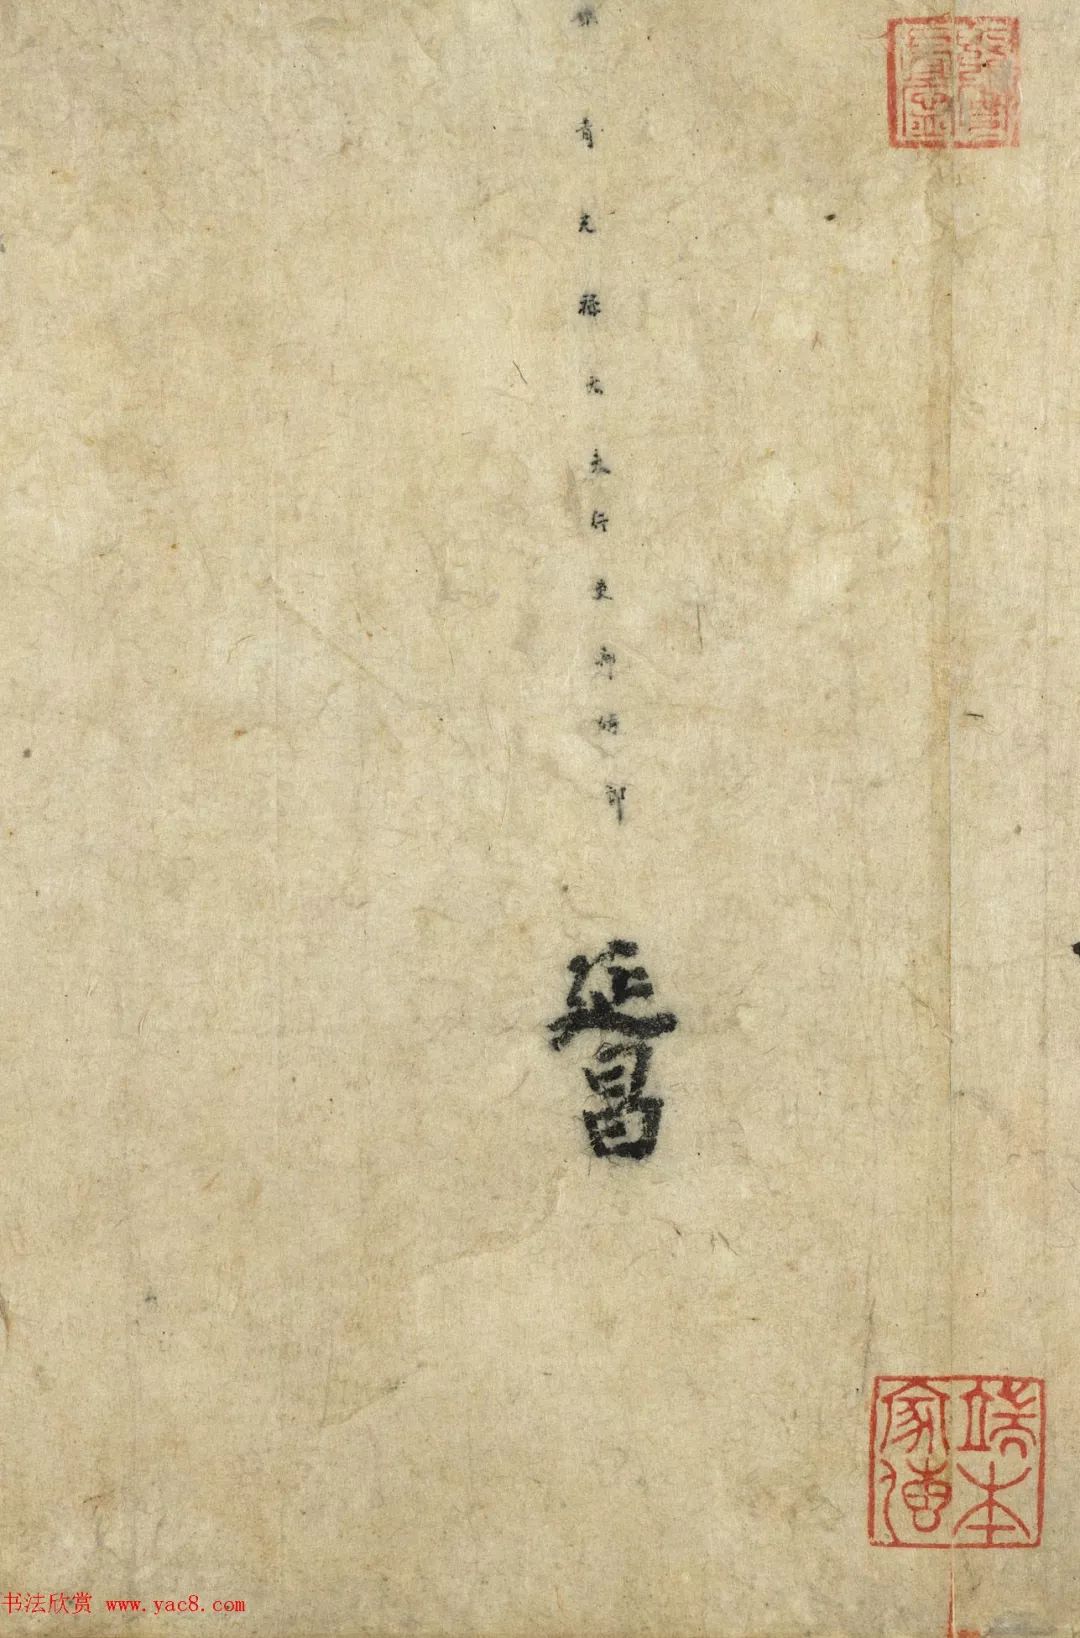 青光祿大夫行吏部侍郎
延昌
端本家傳
书法欣赏 www.yac8.com